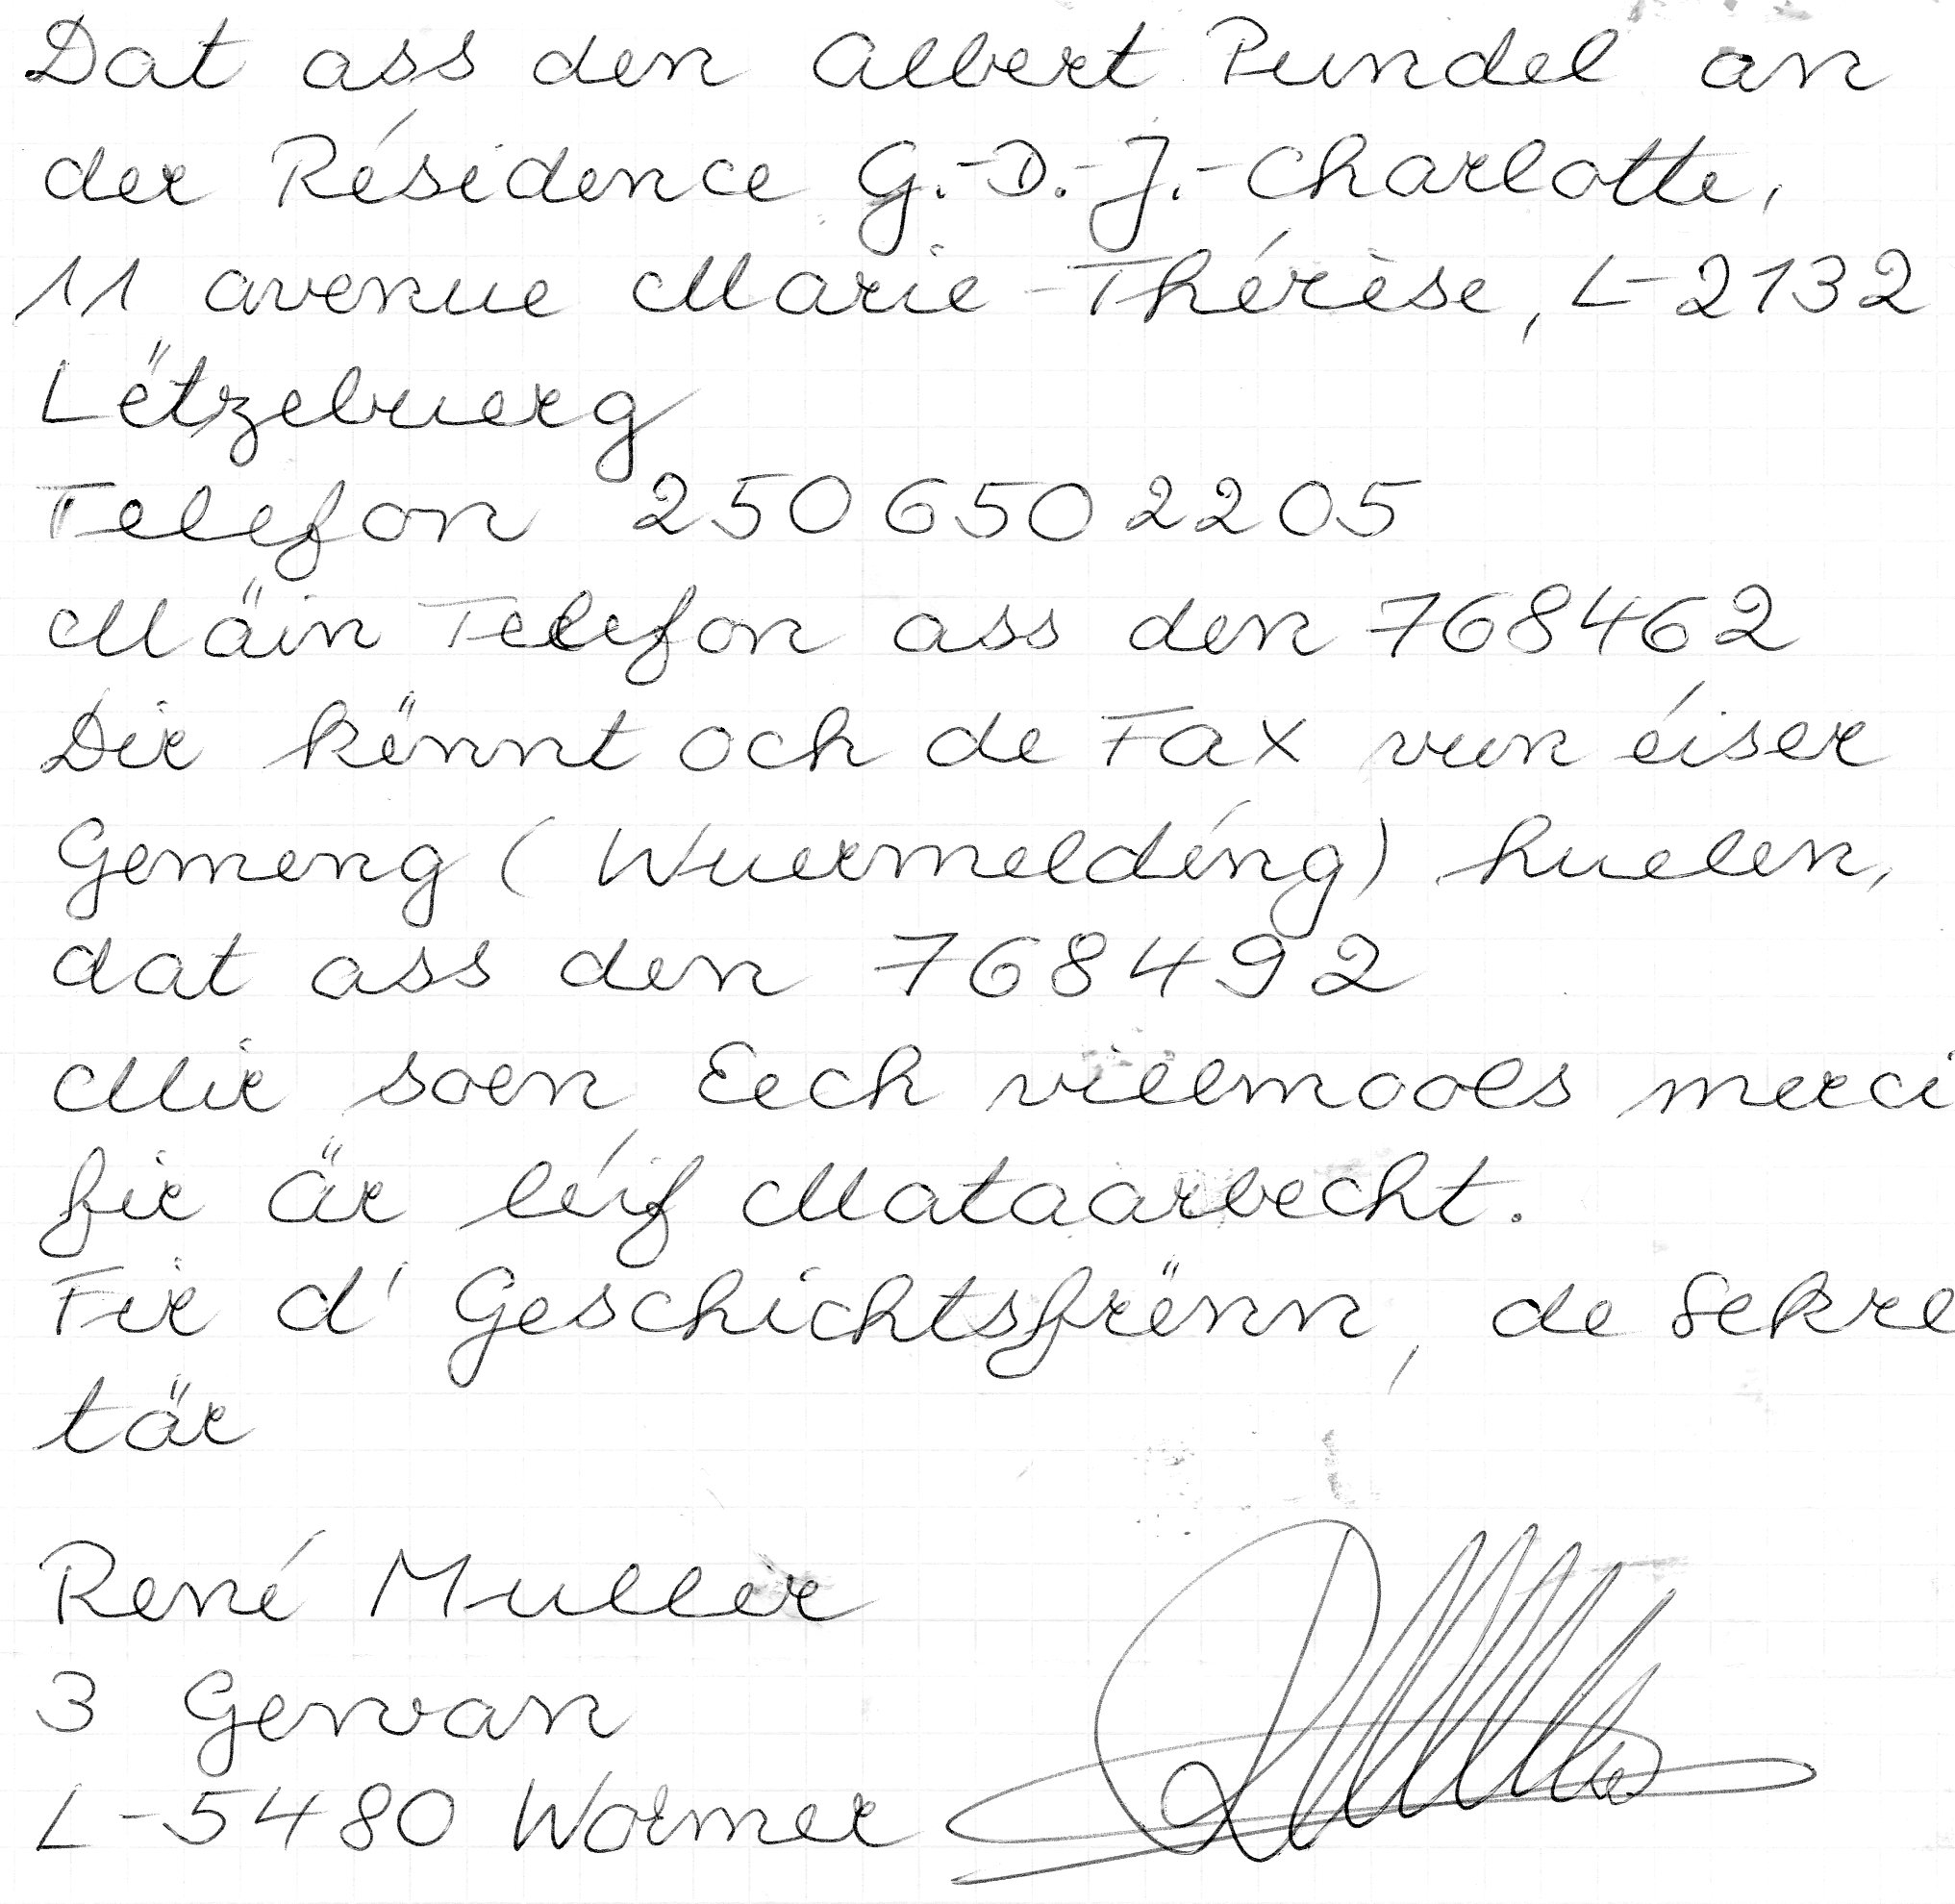 Dat ass den Albert Pundel an
der Résidence G.-D.-J.-Charlotte,
11 avenue Marie-Thérèse, L-2132
Lëtzebuerg
Telefon 250 650 2205
Mäin Telefon ass den 768462
Dir kënnt och de Fax vun éiser
Gemeng (Wuermeldéng) huelen,
dat ass den 768492
Mir soen Eech villmools merci
fir är léif Mataarbecht.
Fir d'Geschichtsfrënn, de Sekre
tär
René Muller
3 Gewan
L-5480 Wormer